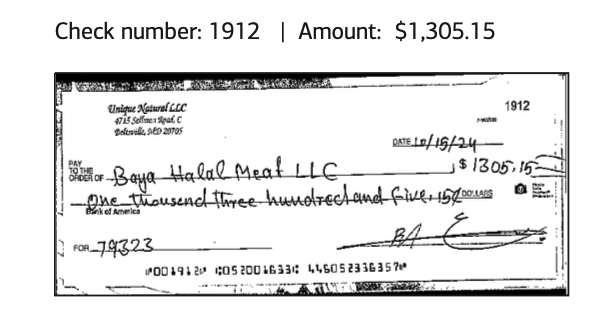 Check number: 1912 | Amount: $1,305.15
Unique Natural LLC
1912
4715 Sellman Road, C
Beltsville, MD 20705
DATE 10/15/24
PAY TO THE ORDER OF Baya Halal Meat LLC $ 1305.15
One thousend three hundred and five, 15¢ DOLLARS
Bank of America
FOR 79323
⑈001912⑈ ⑆052001633⑆ 446052336357⑈